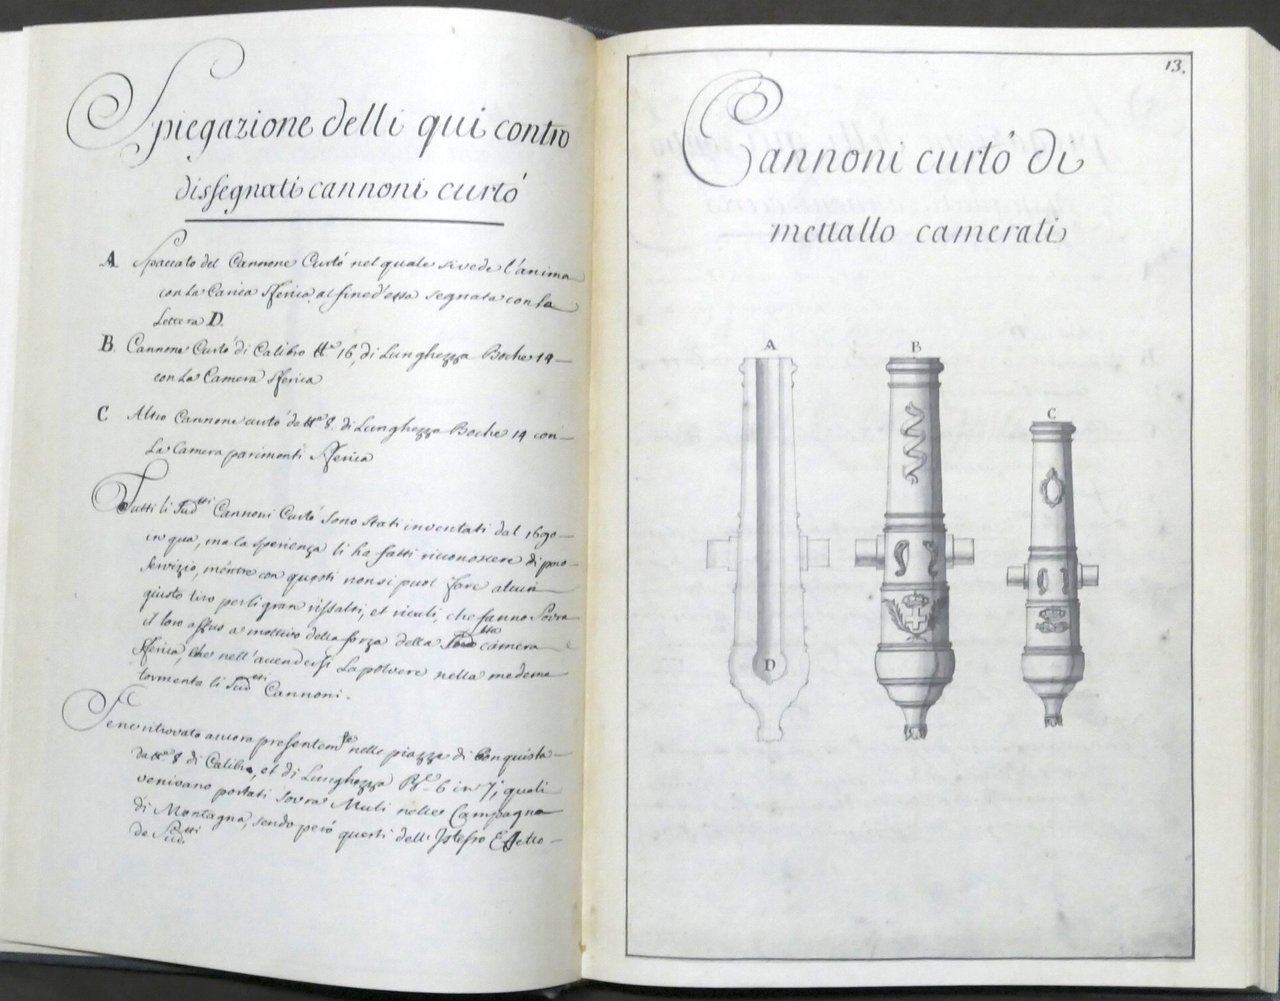 Spiegazione delli qui contro
dissegnati cannoni curtò
A Spaccato del Cannone Curtò nel quale si vede l'anima
con la Carica Sferica al fine d'essa segnata con la
Lettera D.
B. Cannone Curtò di Calibro tt.e 16, di Lunghezza Boche 14
con la Camera Sferica
C Altro Cannone curtò da tt.e 8. di Lunghezza Boche 14 con
La Camera parimenti Sferica
Tutti li Sud.ti Cannoni Curtò sono stati inventati dal 1690
in qua, ma la sperienza li ha fatti riconoscere di poco
servizio, mentre con questi non si puol fare alcun
giusto tiro per li gran rissalti, et riculi, che fanno sovra
il loro affus a mottivo della forza della camera
Sferica, che nell'accendersi la polvere nella medema
tormenta li Sud.ti Cannoni.
Se ne ritrovato ancora presentem.te nelle piazze di Conquista
da tt.e 8 di Calibro, et di Lunghezza P. 6 in 7, quali
venivano portati sovra Muli nelle Campagne
di Montagna, sendo però questi dell'Istesso Effetto
de Sud.tti
13.
Cannoni curtò di
mettallo camerati
A
B
C
D